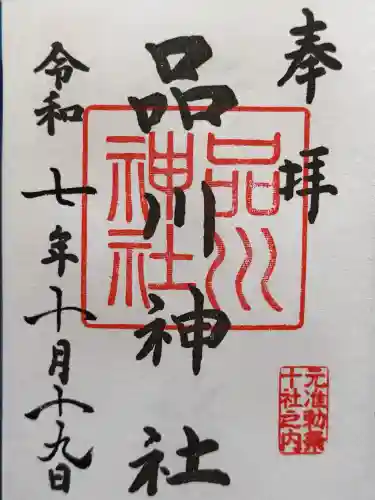 奉拝
品川神社
品川神社
元准勅祭
十社之内
令和七年十月十九日